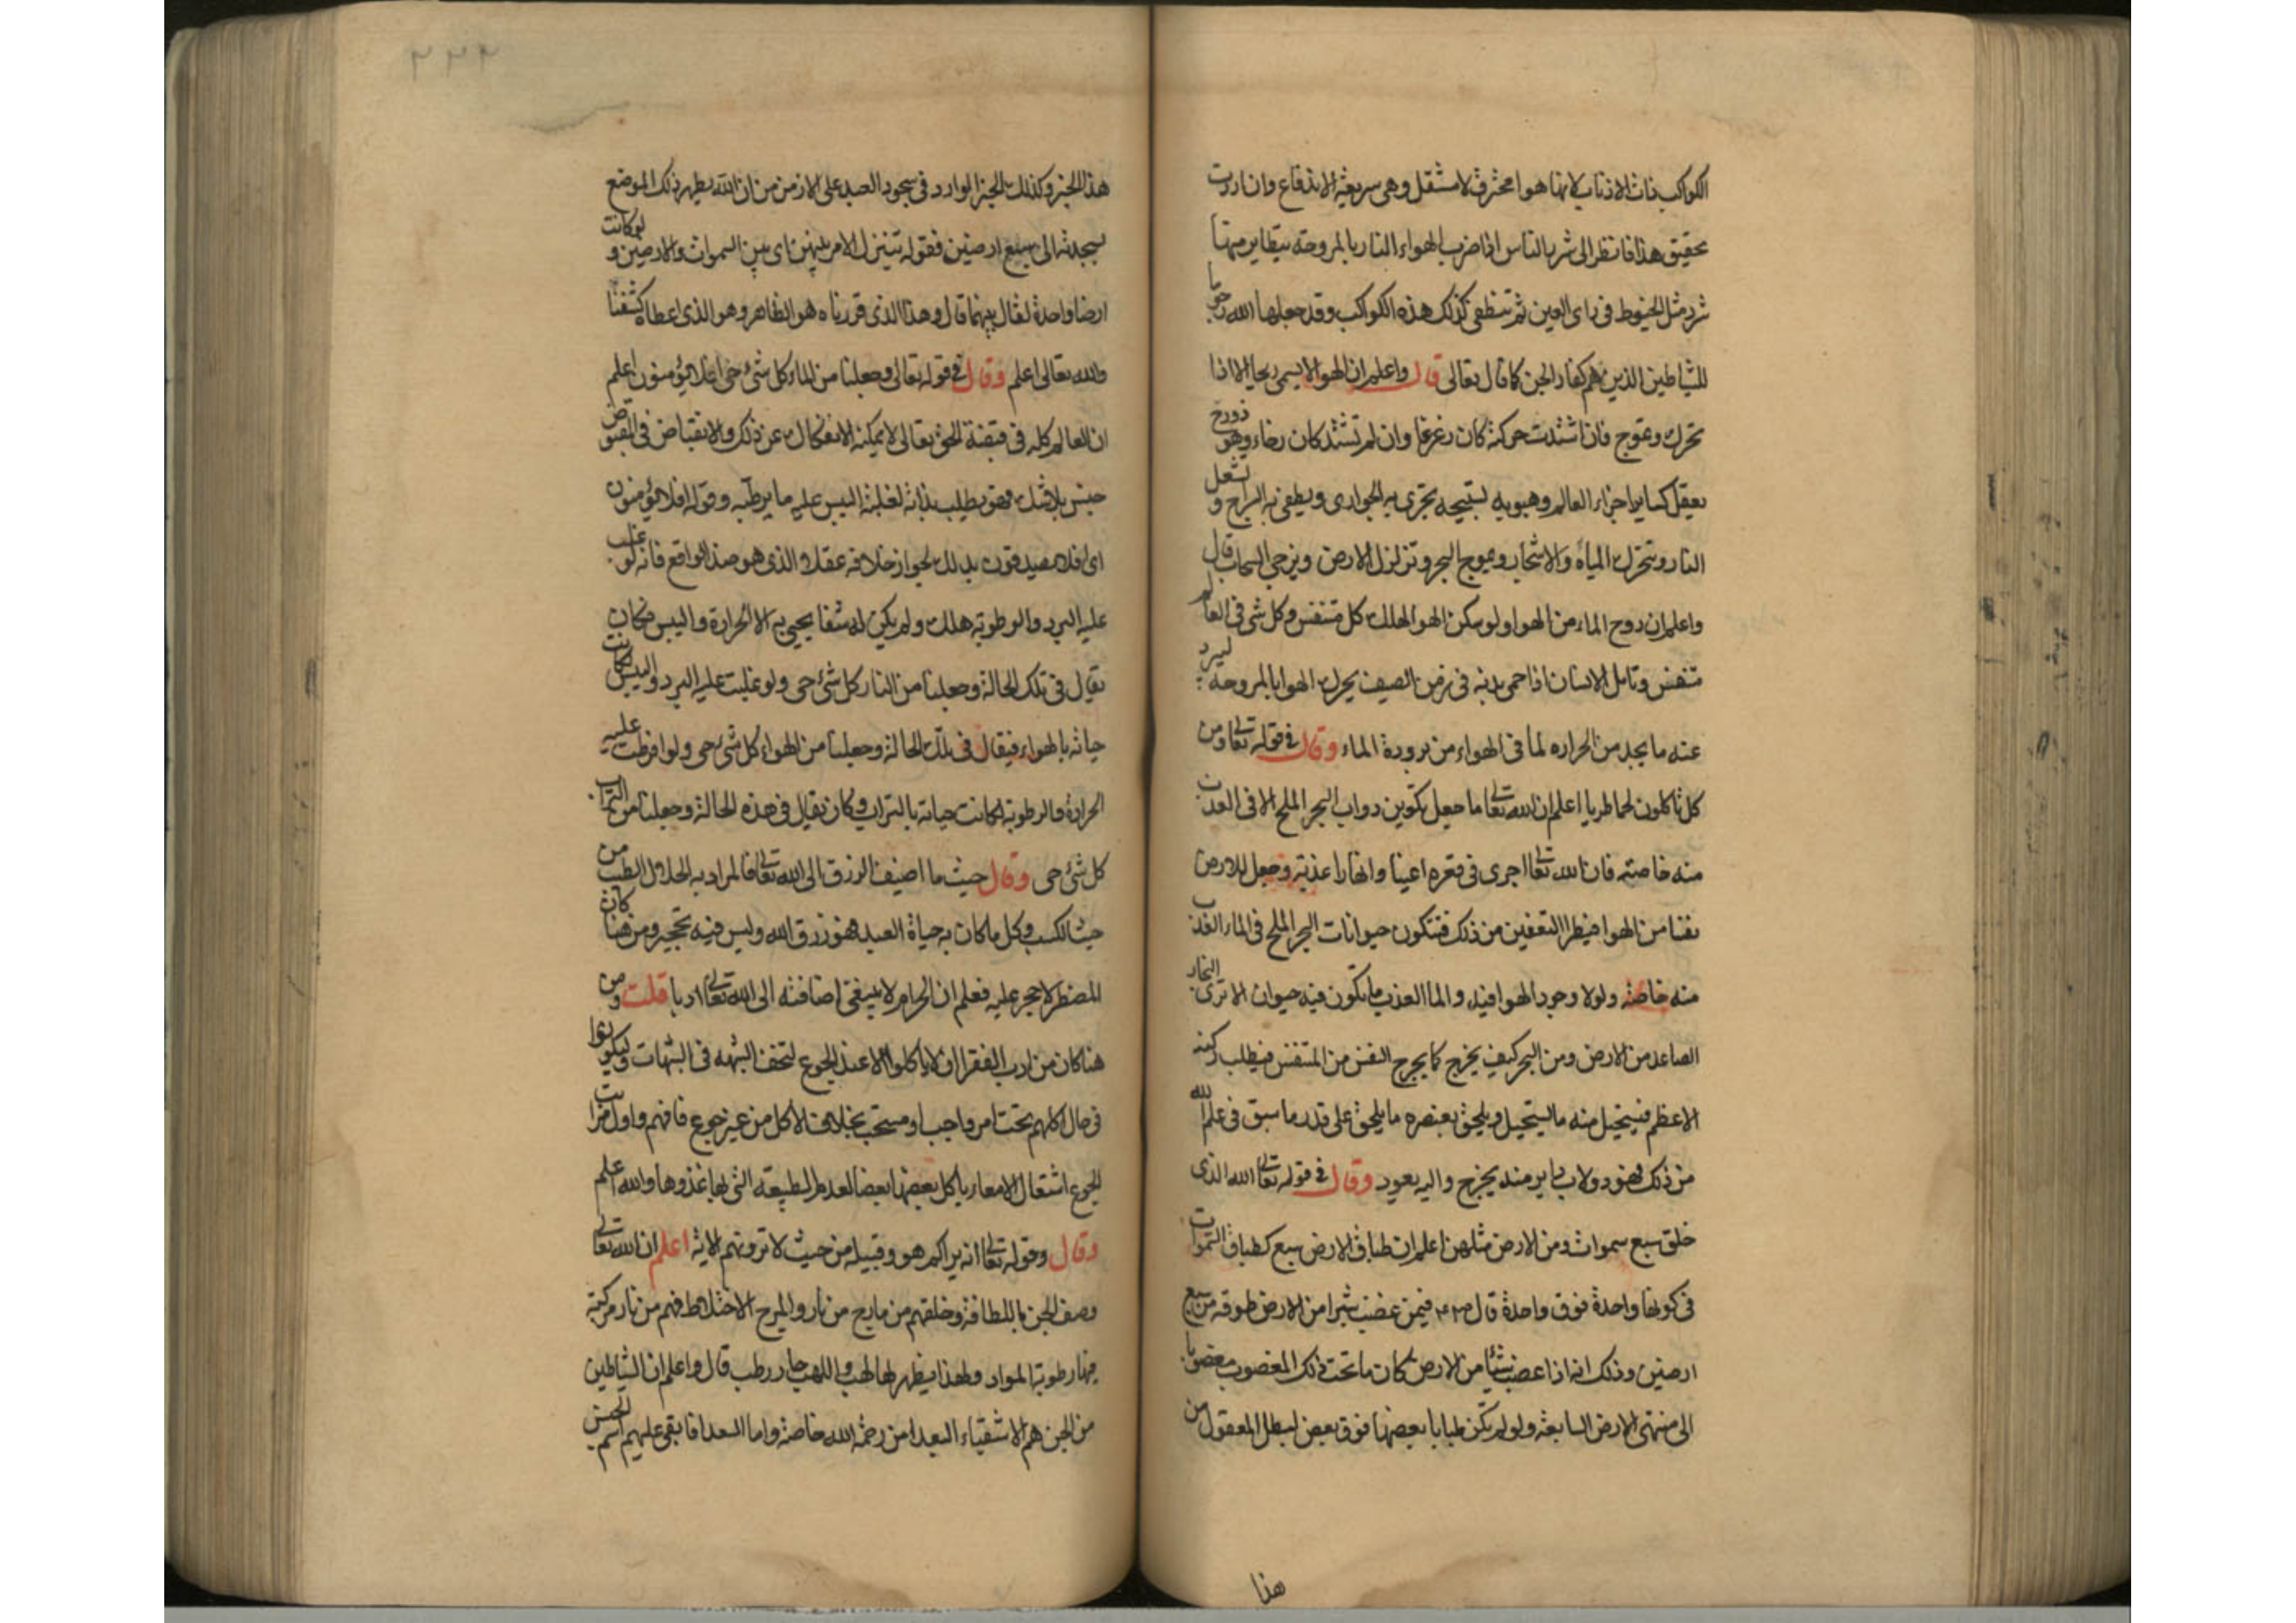 الكواكب ذات الاذناب لانها هوا محترق لا مشتعل وهي سريعة الاندفاع وان اردت
تحقيق هذا فانظر الى شرر النار اذا ضرب الهواء النار بالمروحة يتطاير منها
شرر مثل الخيوط في راى العين ثم تنطفى كذلك هذه الكواكب وقد جعلها الله رجوما
للشياطين الذين هم كفار الجن كما قال تعالى قال واعلم ان الهوا لا يسمى ريحا الا اذا
تحرك وتموج فان اشتدت حركته كان زعزعا وان لم تشتد كان رخاء وهو ذو روح
يعقل كساير اجزاء العالم وهبوبه تسبيحه تجرى به الجوارى ويطفى به السراج وتشعل
النار وتتحرك المياه والاشجار ويموج البحر وتزلزل الارض ويزجي السحاب قال
واعلم ان روح الماء من الهوا ولو سكن الهوا لهلك كل متنفس وكل شى في العالم
متنفس وتامل الانسان اذا حمى بدنه في زمن الصيف يحرك الهوا بالمروحه ليبرد
عنه ما يجد من الحراره لما في الهواء من برودة الماء وقال في قوله تعالى ومن
كل تاكلون لحما طريا اعلم ان الله تعالى ما جعل تكوين دواب البحر الملح الا في العذب
منه خاصة فان الله تعالى اجرى في قعره اعينا وانهارا عذبة وجعل للارض
نفسا من الهوا فيطرا التعفين من ذلك فتتكون حيوانات البحر الملح في الماء العذب
منه خاصة ولولا وجود الهوا فيه والما العذب ما تكون فيه حيوان الا ترى البخار
الصاعد من الارض ومن البحر كيف يخرج كما يخرج النفس من المتنفس فيطلب ركنه
الاعظم فيستحيل منه ما يستحيل ويلحق بعنصره ما يلحق على قدر ما سبق في علم الله
من ذلك فهو دولاب داير منه يخرج واليه يعود وقال في قوله تعالى الله الذى
خلق سبع سموات ومن الارض مثلهن اعلم ان طباق الارض سبع كطباق السموات
في كونها واحدة فوق واحدة قال فيمن غصب شبرا من الارض طوقه من سبع
ارضين وذلك انه اذا غصب شيئا من الارض كان ما تحت ذلك المغصوب مغصوبا
الى منتهى الارض السابعة ولو لم تكن طباقا بعضها فوق بعض لبطل المعقول من
هذا
٢٢٢
هذا الخبر وكذلك الخبر الوارد في سجود العبد على الارض من ان الله يطهر ذلك الموضع
بسجدته الى سبع ارضين فقوله يتنزل الامر بينهن اى بين السموات والارضين ولو كانت
ارضا واحدة لقال بينهما قال وهذا الذى قررناه هو الظاهر وهو الذى اعطاه كشفنا
والله تعالى اعلم وقال في قوله تعالى وجعلنا من الماء كل شئ حى افلا يؤمنون اعلم
ان العالم كله في قبضة الحق تعالى لا يمكنه الانفكاك عن ذلك والانقباض في المقبوض
يبس بلا شك فهو يطلب بذاته لغلبة اليبس عليه ما يرطبه وقوله افلا يؤمنون
اى افلا يصدقون بذلك لجواز خلافه عقلا الذى هو ضد الواقع فانه لو غلب
عليه البرد والرطوبة هلك ولم يكن له شفا يحيى به الا الحرارة واليبس فكان
يقال في تلك الحالة وجعلنا من النار كل شئ حى ولو غلبت عليه البرد واليبس لكانت
حياته بالهواء فيقال في تلك الحالة وجعلنا من الهواء كل شئ حى ولو افرطت عليه
الحرارة والرطوبة لكانت حياته بالتراب وكان يقال في هذه الحالة وجعلنا من التراب
كل شئ حى وقال حيث ما اضيف الرزق الى الله تعالى فالمراد به الحلال الطيب من
حيث الكسب وكل ما كان به حياة العبد فهو رزق الله وليس فيه تحجير ومن هنا كان
المضطر لا حجر عليه فعلم ان الحرام لا ينبغى اضافته الى الله تعالى ادبا قلت ومن
هنا كان من ادب الفقرا ان لا ياكلوا الا عند الجوع لتخف الشبهه في الشبهات وليكونوا
في حال اكلهم تحت امر واجب او مستحب بخلاف الاكل من غير جوع فافهم واول مراتب
الجوع اشتعال الامعا ريا كل بعضها بعضا لعدم الطبيعة التي بها غذوها والله اعلم
وقال وقوله تعالى انه يراكم هو وقبيله من حيث لا ترونهم الاية اعلم ان الله تعالى
وصف الجن باللطافة وخلقهم من مارج من نار والمرج الاختلاط فهم من نار مركبة
فيها رطوبة المواد ولهذا يظهر لها لهب واللهب حار رطب قال واعلم ان الشياطين
من الجن هم الاشقياء البعدا من رحمة الله خاصة واما السعدا فابقى عليهم اسم الجن